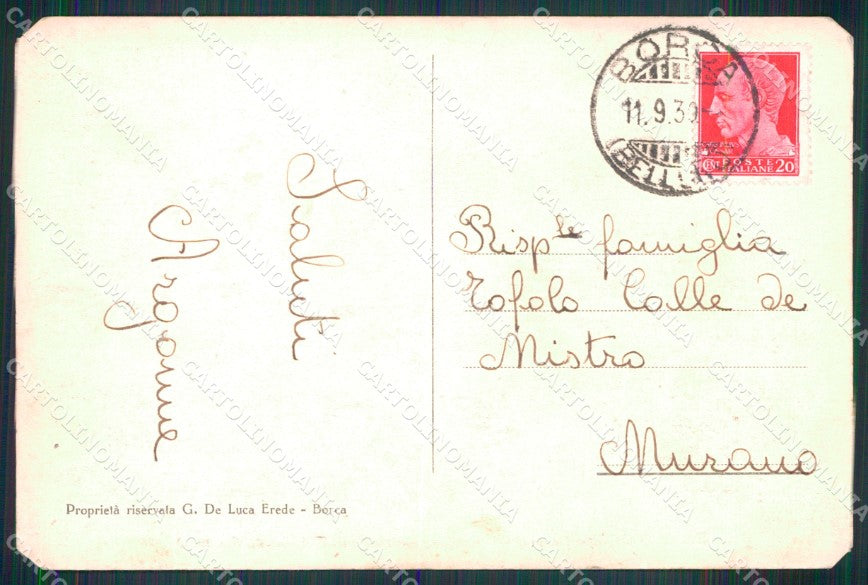 Saluti
Argonne
Proprietà riservata G. De Luca Erede - Borca
BORCA
11.9.39
(BELLUNO)
CENT POSTE ITALIANE 20
Risp.le famiglia
Tofolo Calle de
Mistro
Murano
CARTOLINOMANIA